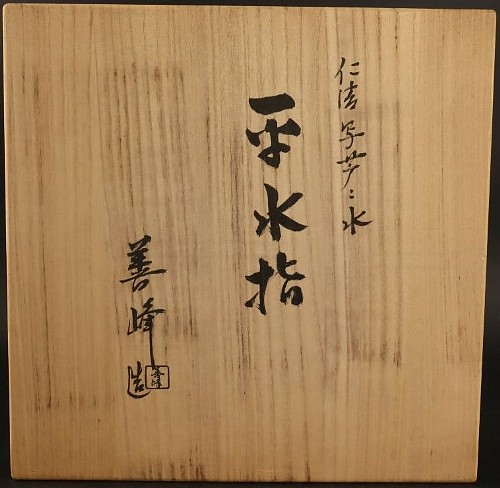 仁清写芦ニ水
平水指
善峰造